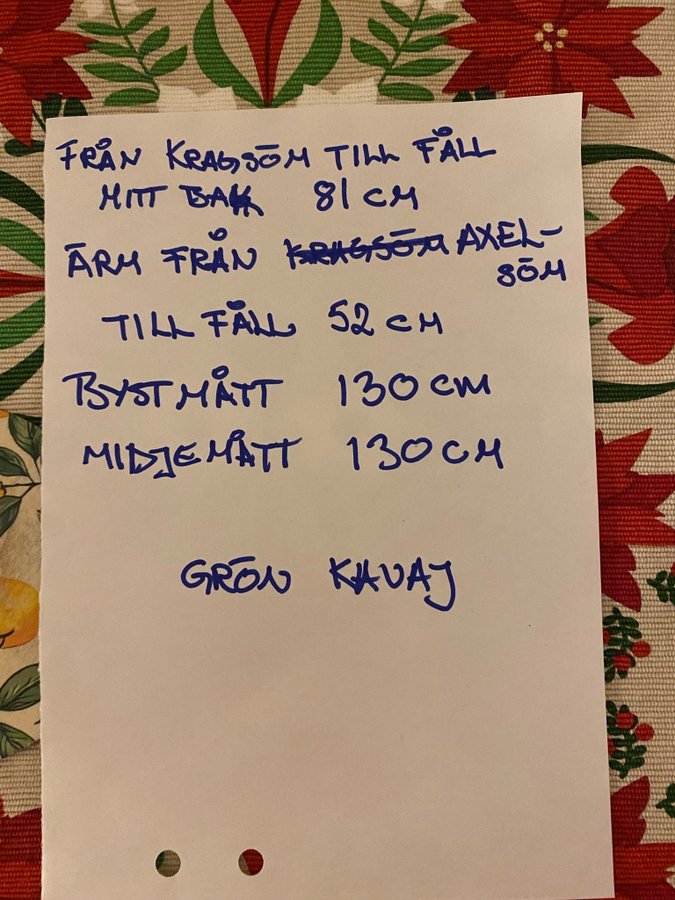 FRÅN KRAGSÖM TILL FÅLL
MITT BAK 81 CM
ÄRM FRÅN KRAGSÖM AXEL-
SÖM
TILL FÅLL 52 CM
BYSTMÅTT 130 CM
MIDJEMÅTT 130 CM
GRÖN KAVAJ